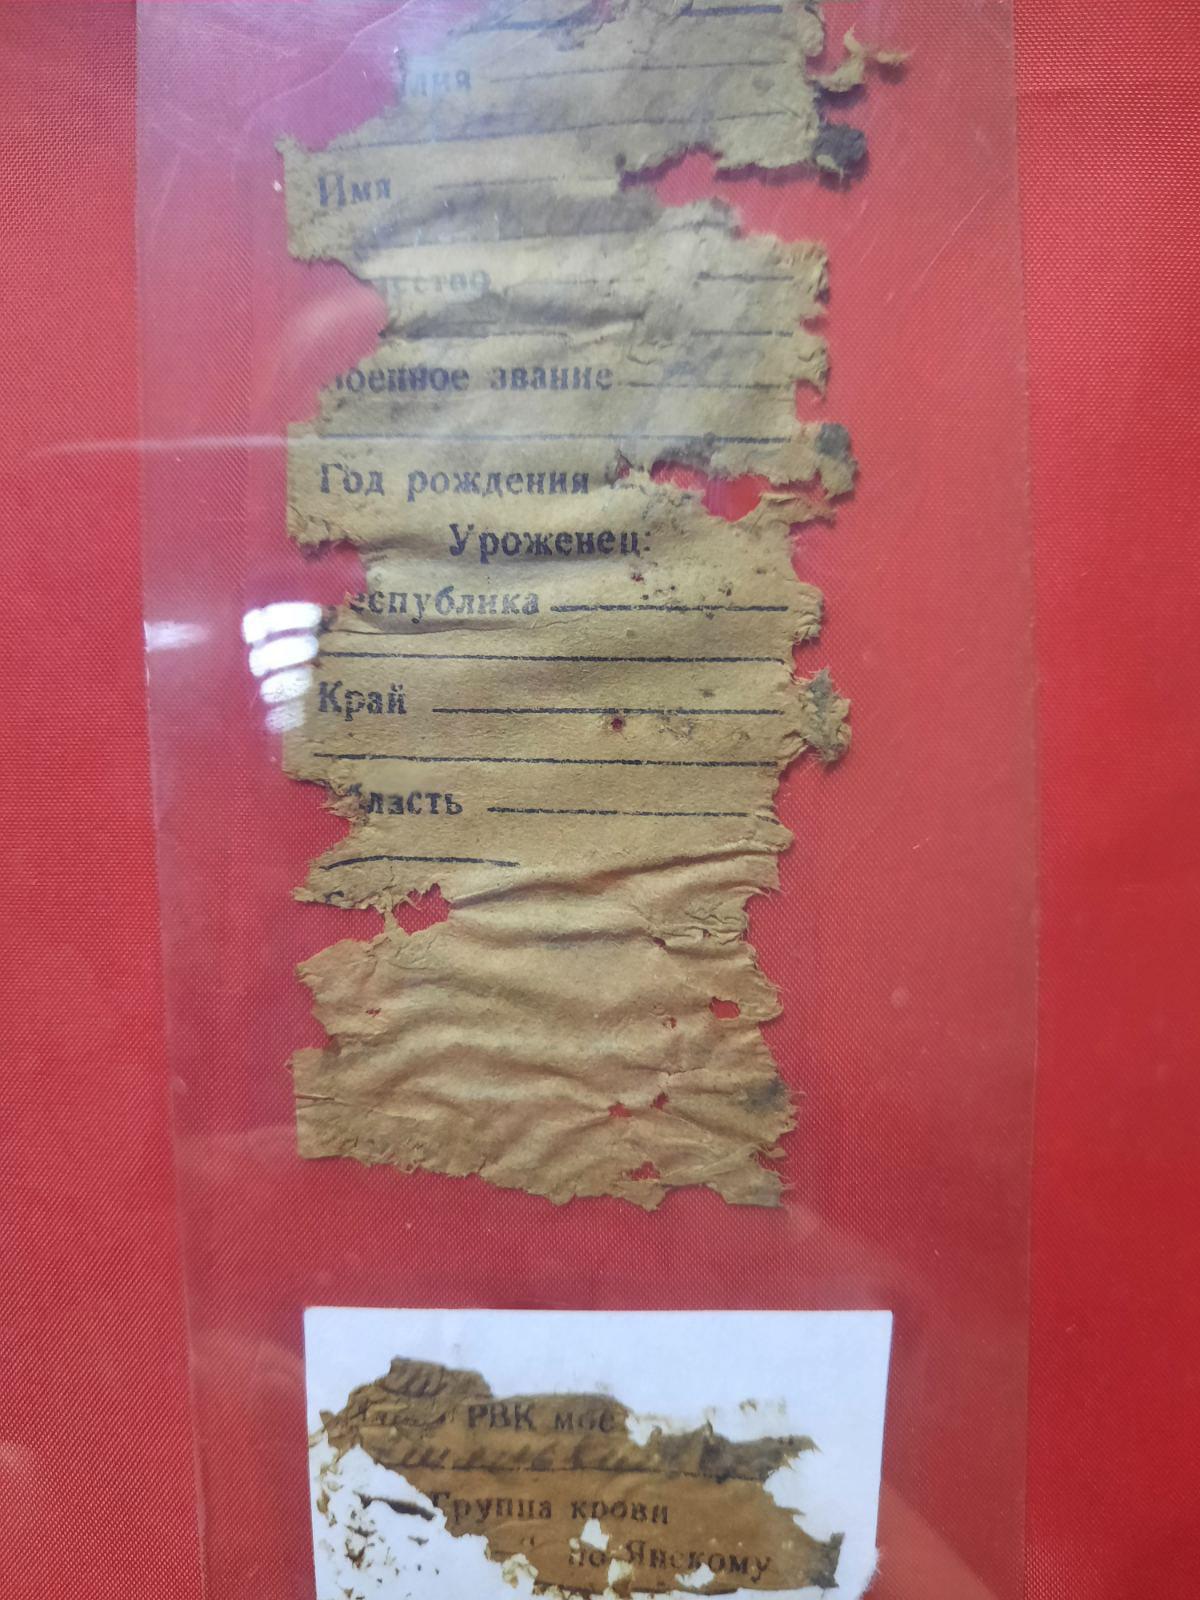 лия
Имя
ство
военное звание
Год рождения
Уроженец:
еспублика
Край
бласть
РВК мос
Группа крови
по Янскому